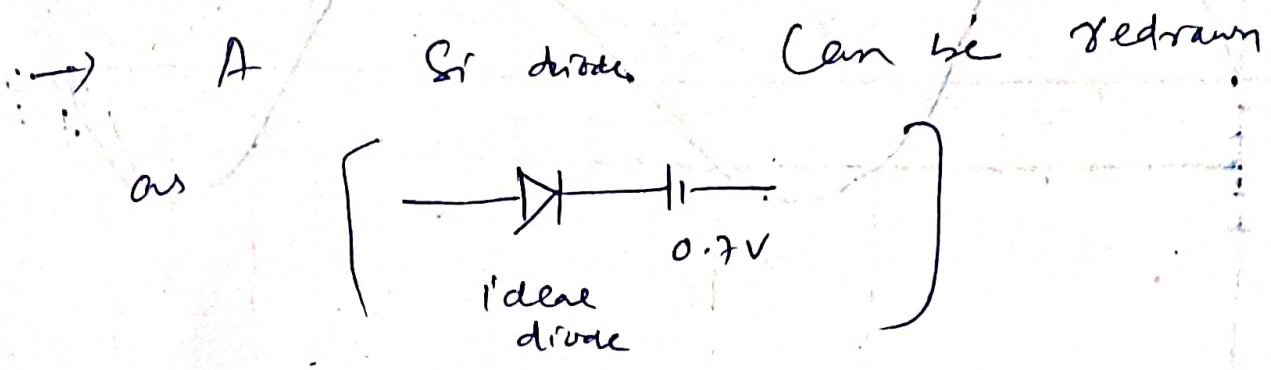 → A Si diode Can be redrawn
as
0.7V
ideal
diode